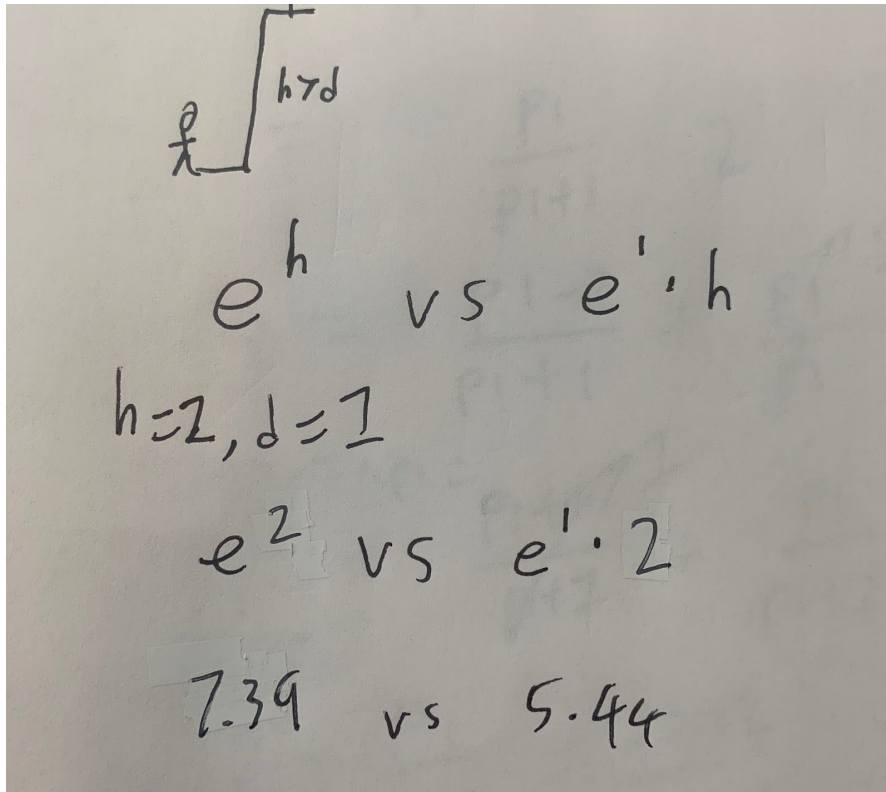 h>d
e^h vs e^1 · h
h=2, d=1
e^2 vs e^1 · 2
7.39 vs 5.44